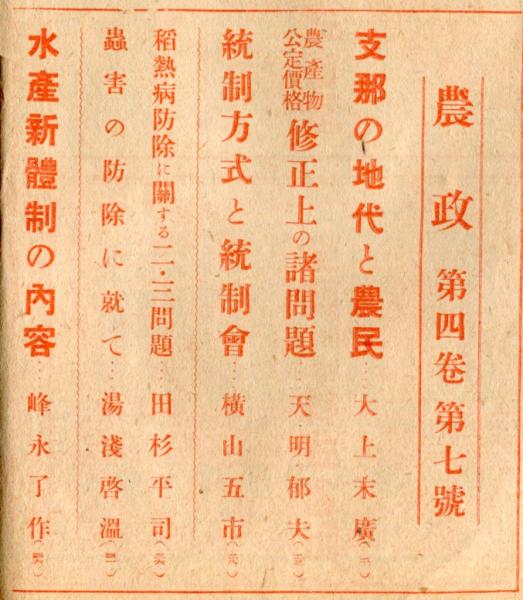 農政 第四卷第七號
支那の地代と農民…大上末廣
農產物公定價格修正上の諸問題…天明郁夫
統制方式と統制會…橫山五市
稻熱病防除に關する二・三問題…田杉平司
蟲害の防除に就て…湯淺啓溫
水產新體制の內容…峰永了作